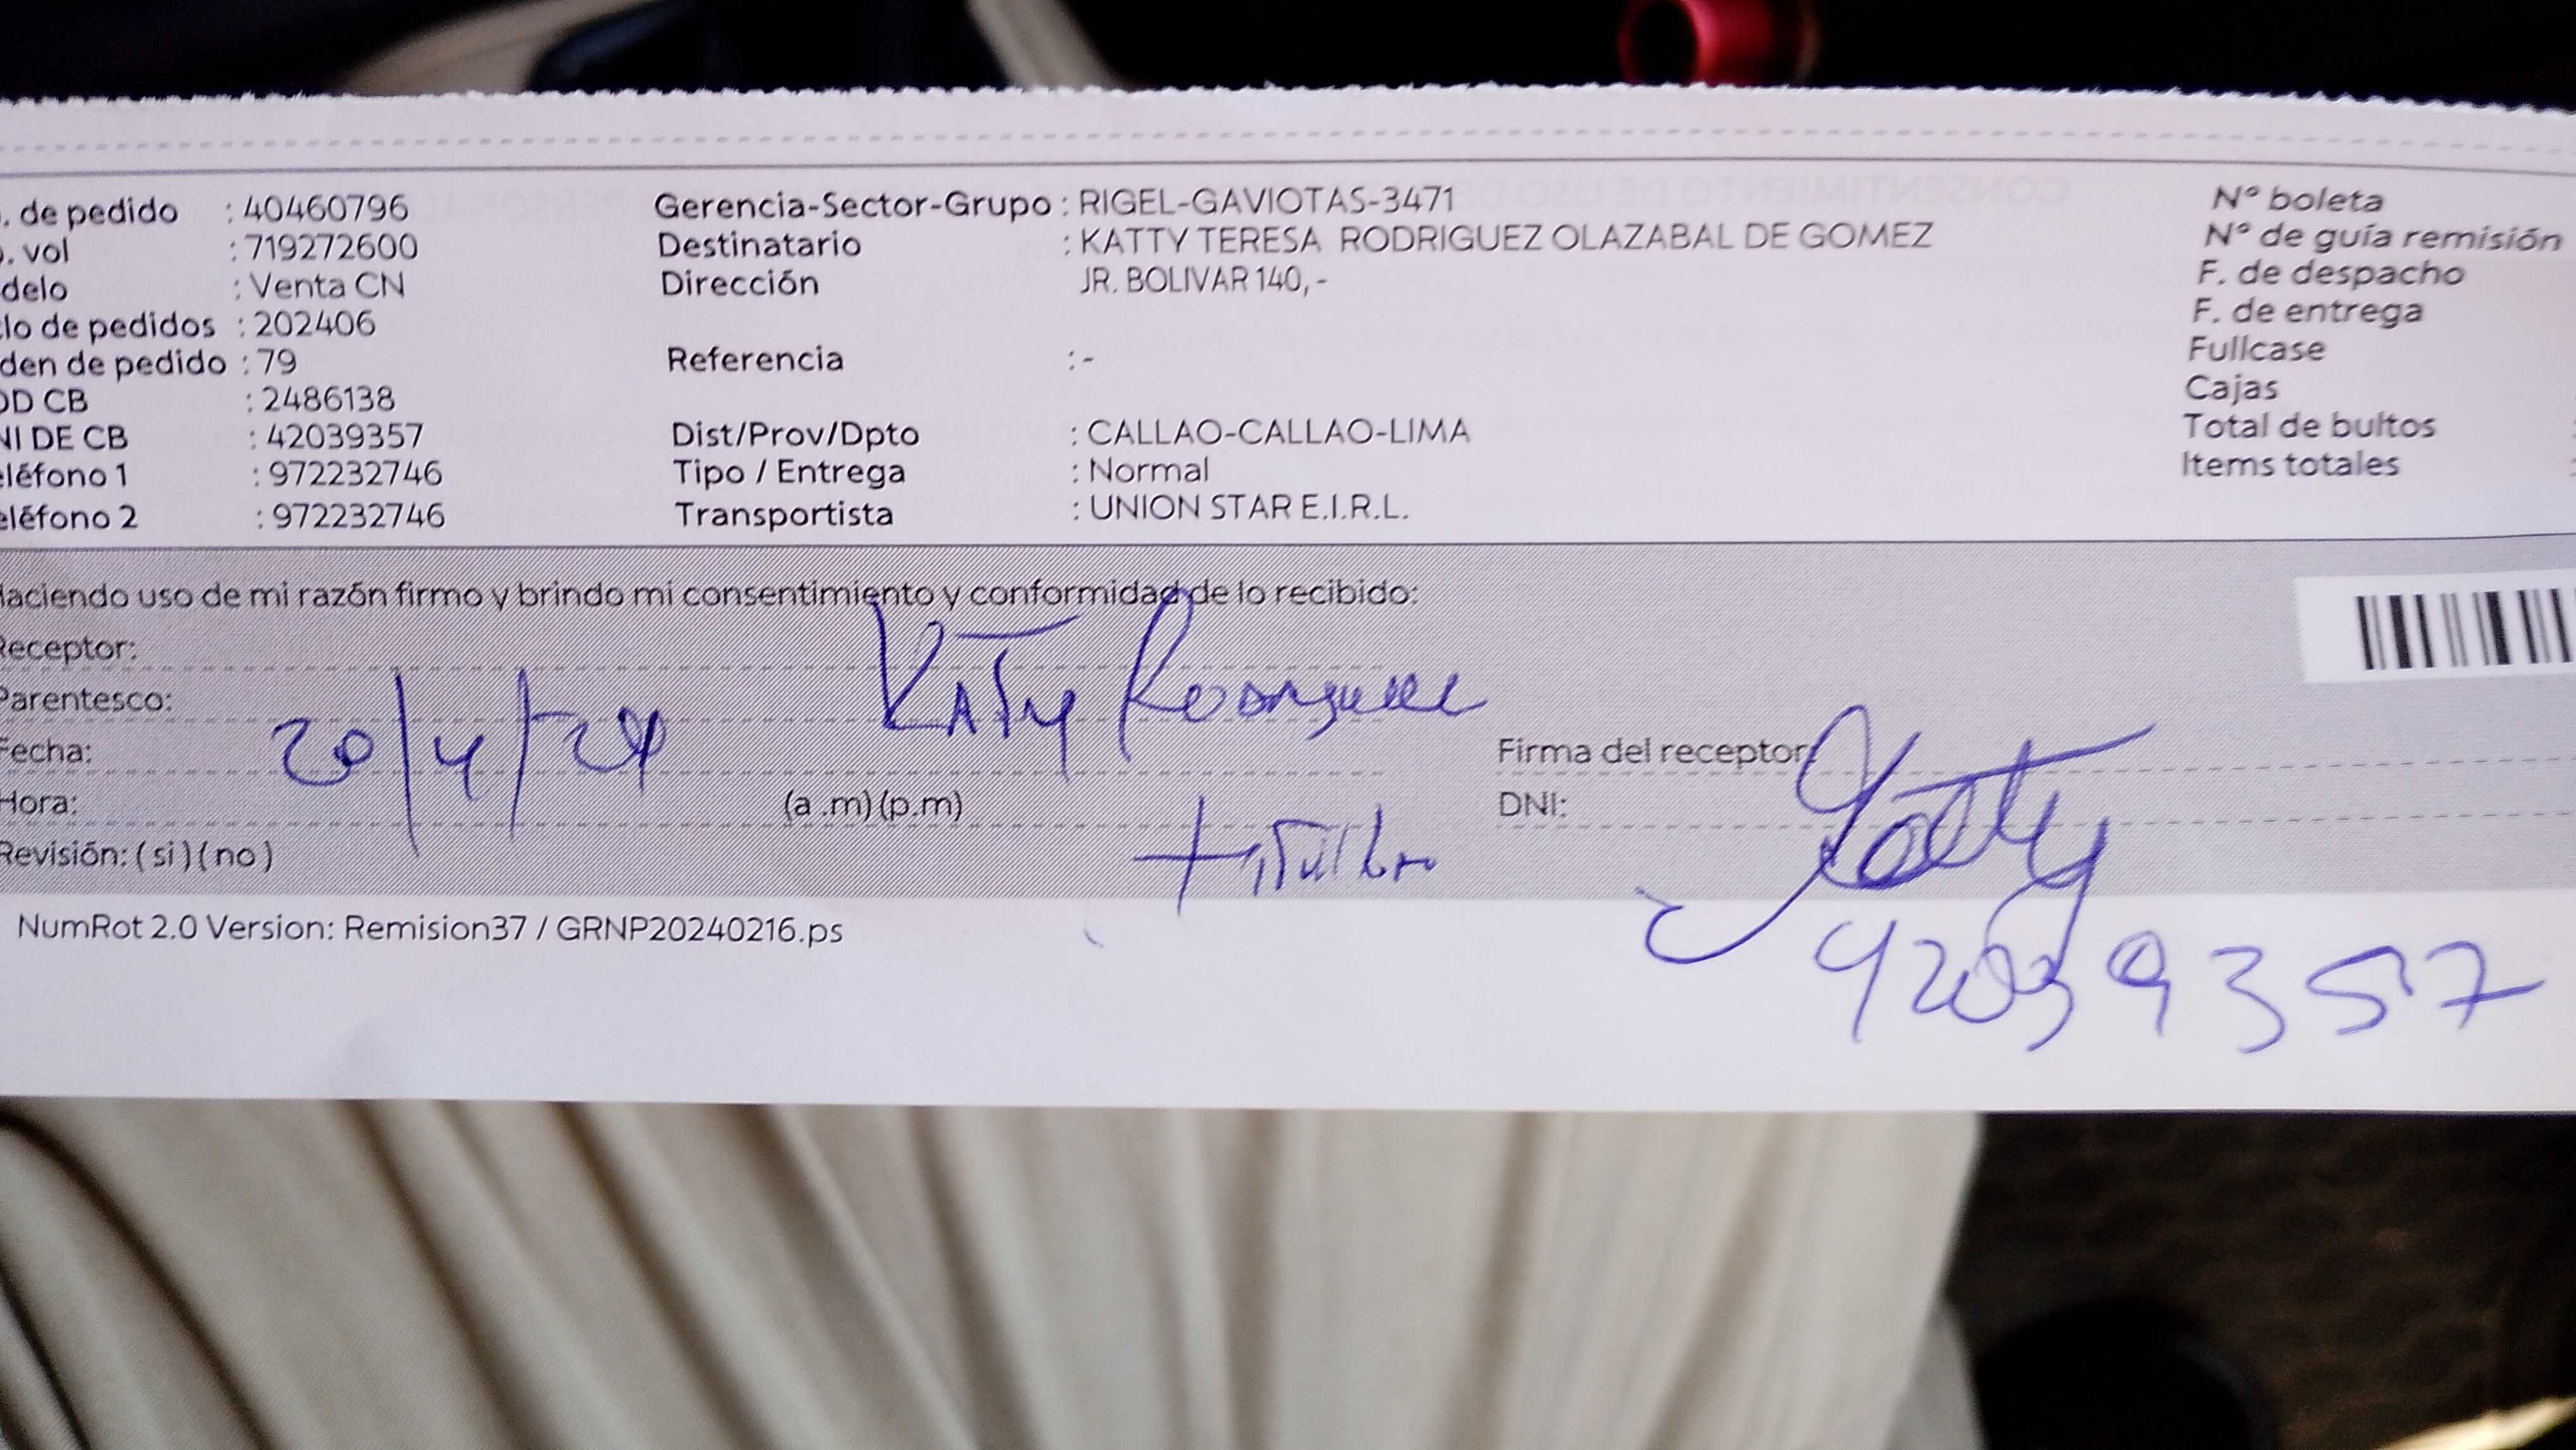 . de pedido : 40460796 Gerencia-Sector-Grupo : RIGEL-GAVIOTAS-3471 N° boleta
. vol : 719272600 Destinatario : KATTY TERESA RODRIGUEZ OLAZABAL DE GOMEZ N° de guía remisión
delo : Venta CN Dirección JR. BOLIVAR 140, - F. de despacho
lo de pedidos : 202406 F. de entrega
den de pedido : 79 Referencia : - Fullcase
OD CB : 2486138 Cajas
NI DE CB : 42039357 Dist/Prov/Dpto : CALLAO-CALLAO-LIMA Total de bultos
eléfono 1 : 972232746 Tipo / Entrega : Normal Items totales
eléfono 2 : 972232746 Transportista : UNION STAR E.I.R.L.
Haciendo uso de mi razón firmo y brindo mi consentimiento y conformidad de lo recibido:
Receptor:
Parentesco: KATy Rodriguez
Fecha: 20/4/24 Firma del receptor: Katty
Hora: (a .m) (p.m) DNI:
Revisión: ( si ) ( no )
NumRot 2.0 Version: Remision37 / GRNP20240216.ps
42039357